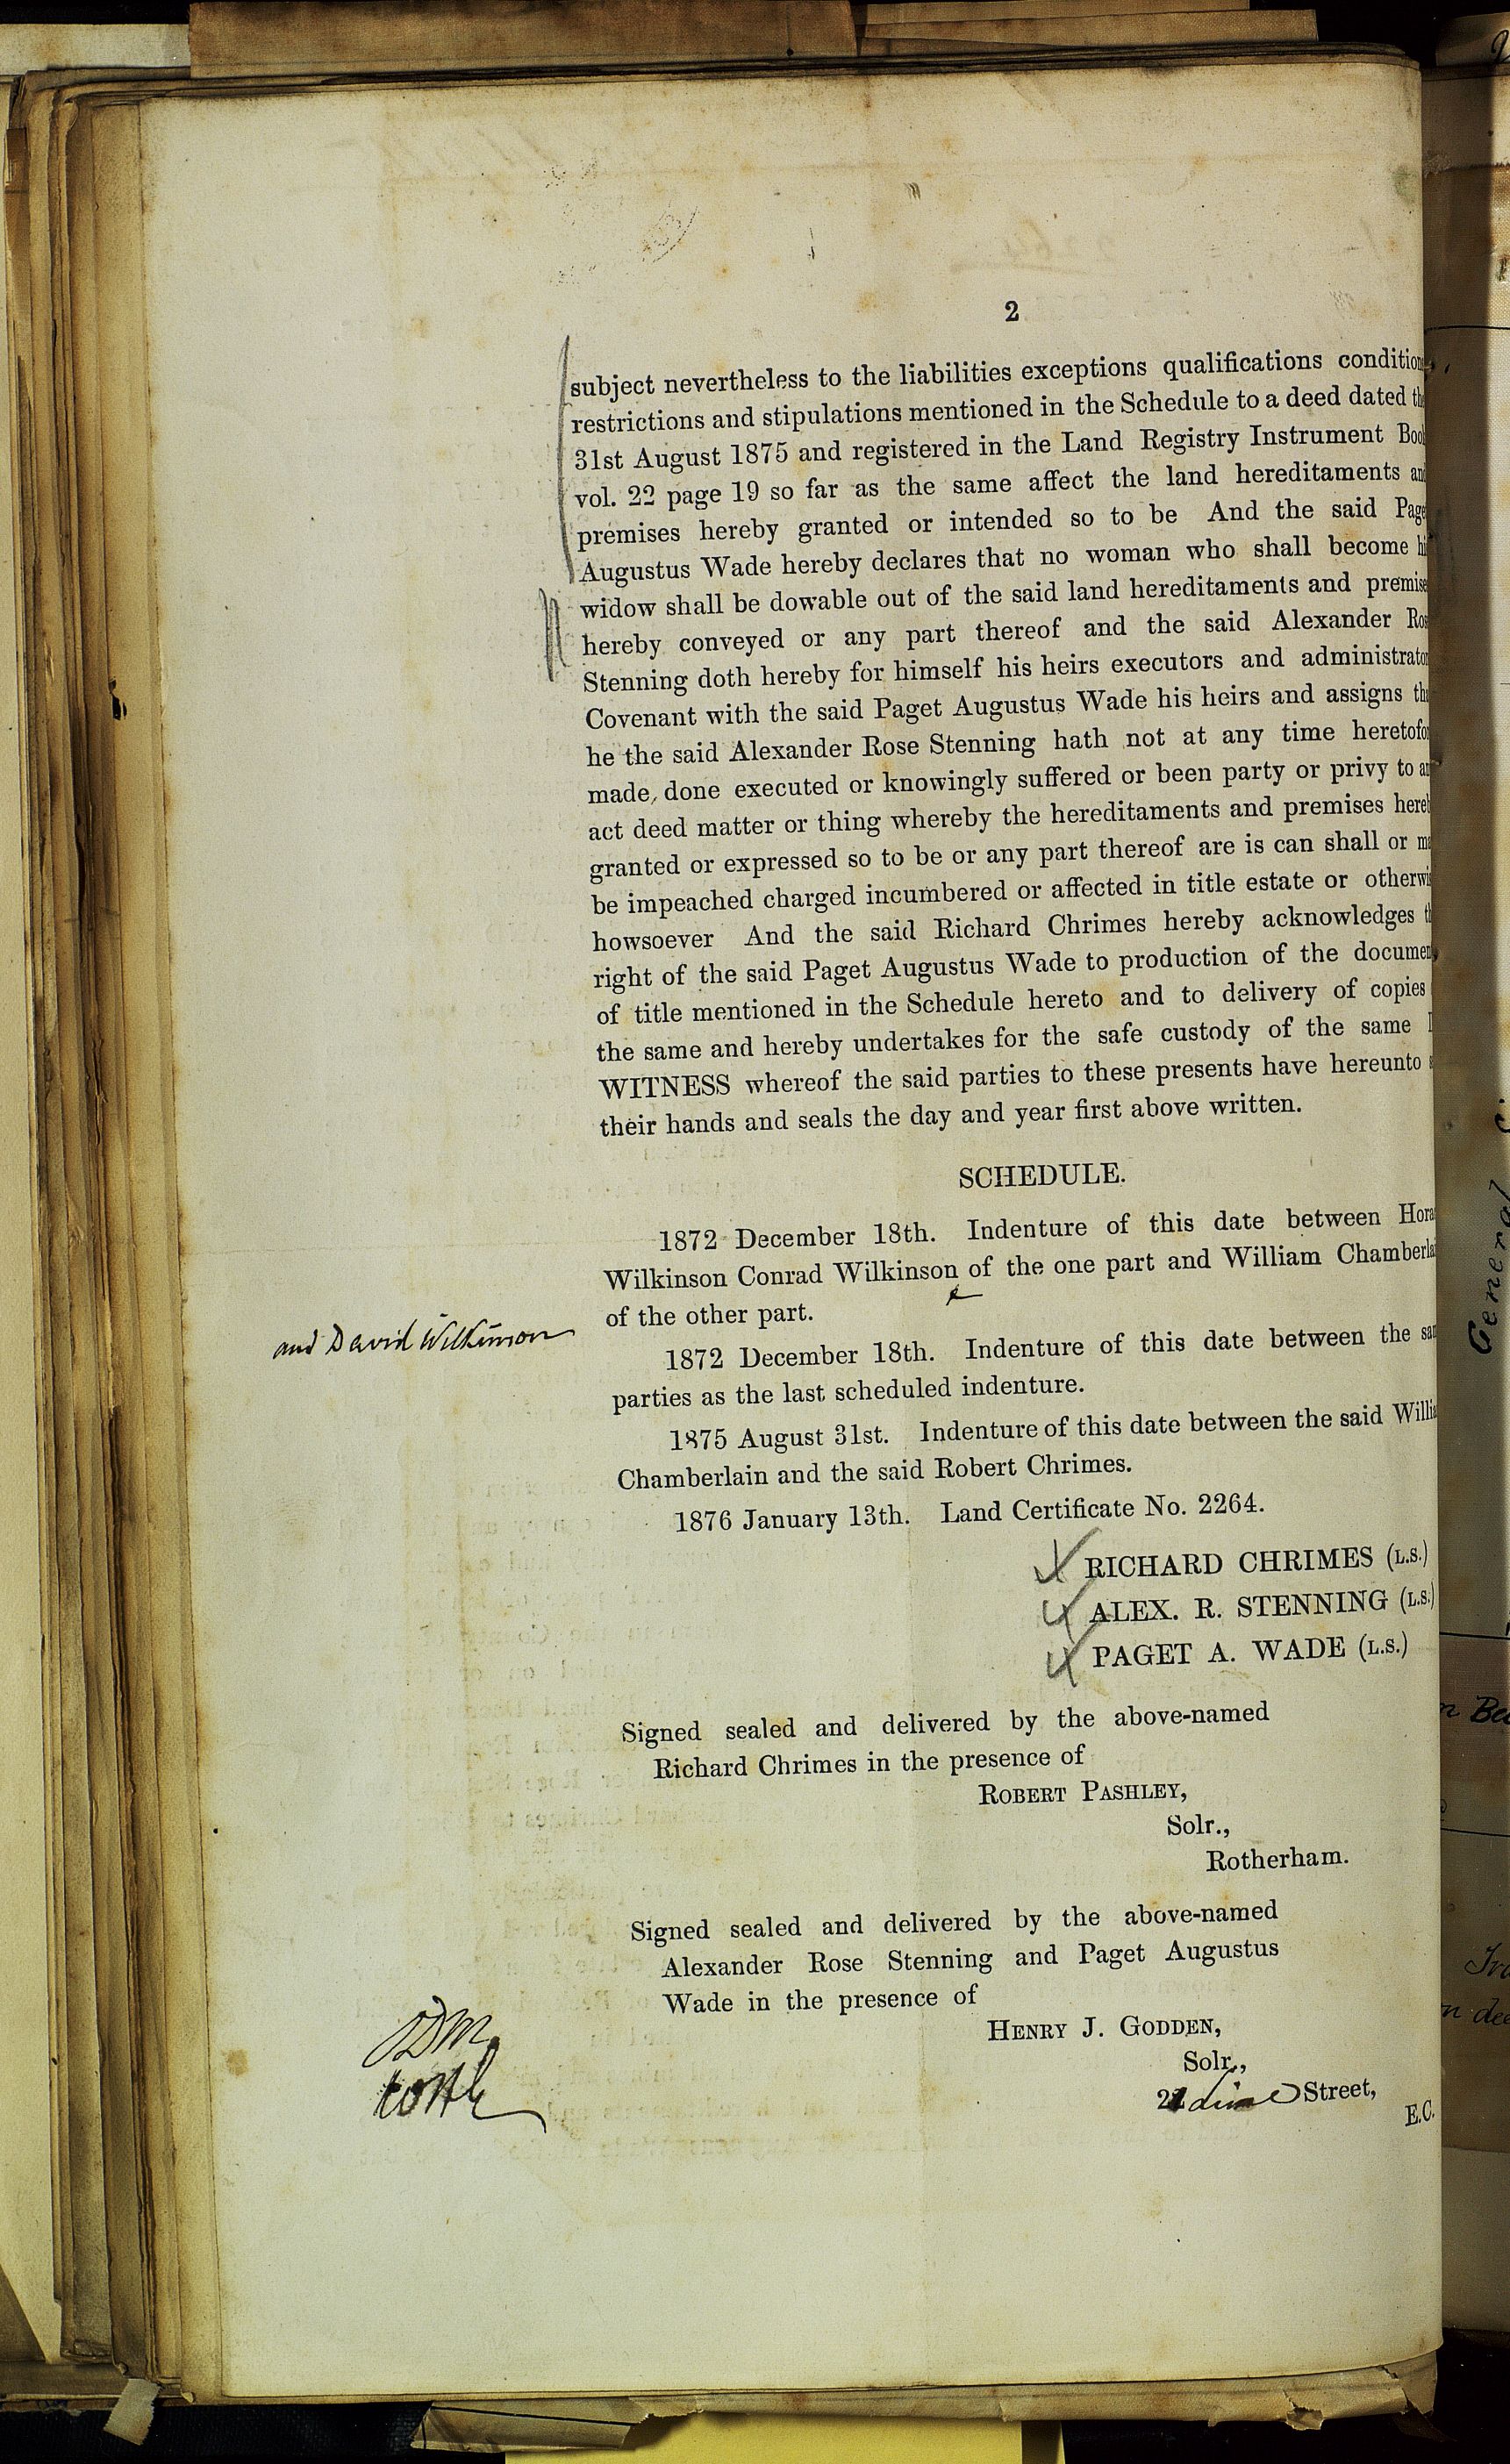 2
subject nevertheless to the liabilities exceptions qualifications condition
restrictions and stipulations mentioned in the Schedule to a deed dated th
31st August 1875 and registered in the Land Registry Instrument Boo
vol. 22 page 19 so far as the same affect the land hereditaments an
premises hereby granted or intended so to be And the said Page
Augustus Wade hereby declares that no woman who shall become hi
widow shall be dowable out of the said land hereditaments and premise
hereby conveyed or any part thereof and the said Alexander Ros
Stenning doth hereby for himself his heirs executors and administrator
Covenant with the said Paget Augustus Wade his heirs and assigns th
he the said Alexander Rose Stenning hath not at any time heretofo
made, done executed or knowingly suffered or been party or privy to a
act deed matter or thing whereby the hereditaments and premises here
granted or expressed so to be or any part thereof are is can shall or m
be impeached charged incumbered or affected in title estate or otherwi
howsoever And the said Richard Chrimes hereby acknowledges t
right of the said Paget Augustus Wade to production of the documen
of title mentioned in the Schedule hereto and to delivery of copies
the same and hereby undertakes for the safe custody of the same I
WITNESS whereof the said parties to these presents have hereunto s
their hands and seals the day and year first above written.
SCHEDULE.
1872 December 18th. Indenture of this date between Hora
Wilkinson Conrad Wilkinson of the one part and William Chamberla
of the other part.
and David Wilkinson
1872 December 18th. Indenture of this date between the sa
parties as the last scheduled indenture.
1875 August 31st. Indenture of this date between the said Willia
Chamberlain and the said Robert Chrimes.
1876 January 13th. Land Certificate No. 2264.
RICHARD CHRIMES (L.S.)
ALEX. R. STENNING (L.S.)
PAGET A. WADE (L.S.)
Signed sealed and delivered by the above-named
Richard Chrimes in the presence of
ROBERT PASHLEY,
Solr.,
Rotherham.
Signed sealed and delivered by the above-named
Alexander Rose Stenning and Paget Augustus
Wade in the presence of
HENRY J. GODDEN,
Solr.,
Street,
E.C.
General